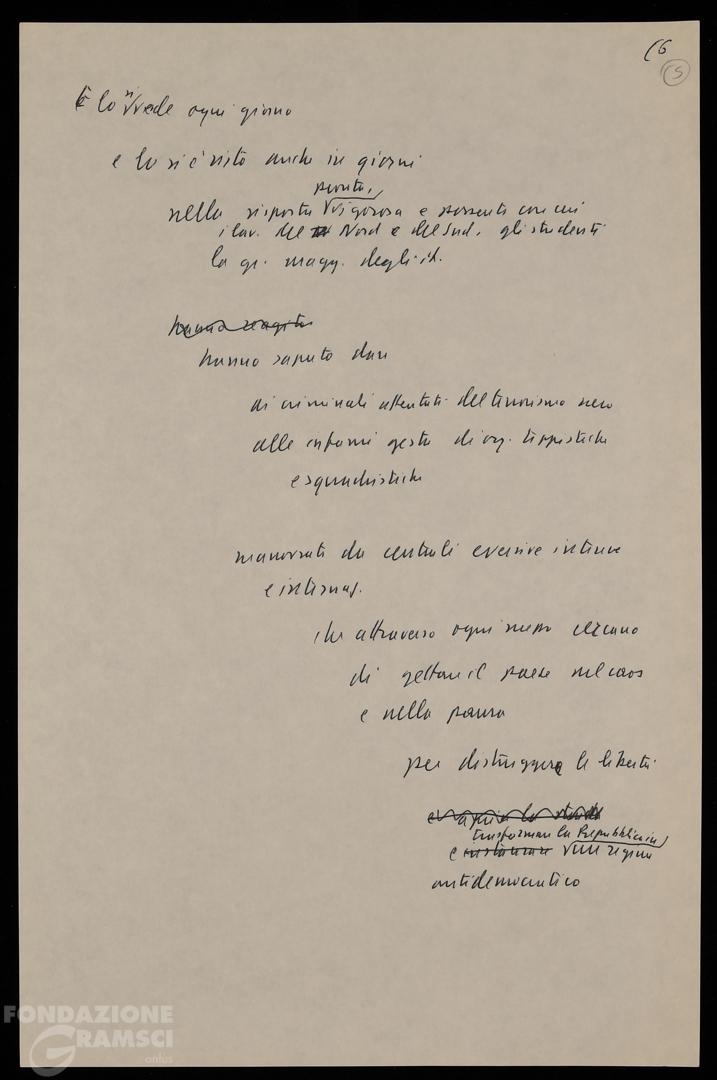 16
15
E lo si vede ogni giorno
e lo si è visto anche in giorni
pronta,
nella risposta vigorosa e possente con cui
i lav. del Nord e del Sud, gli studenti
la gr. magg. degli it.
hanno reagito
hanno saputo dare
ai criminali attentati del terrorismo nero
alle infami gesta di org. teppistiche
e squadristiche
manovrati da centrali eversive interne
e internaz.
che attraverso ogni mezzo cercano
di gettare il paese nel caos
e nella paura
per distruggere le libertà
e aprire la strada
trasformare la Repubblica in
e instaurare un regime
antidemocratico
FONDAZIONE
GRAMSCI
onlus